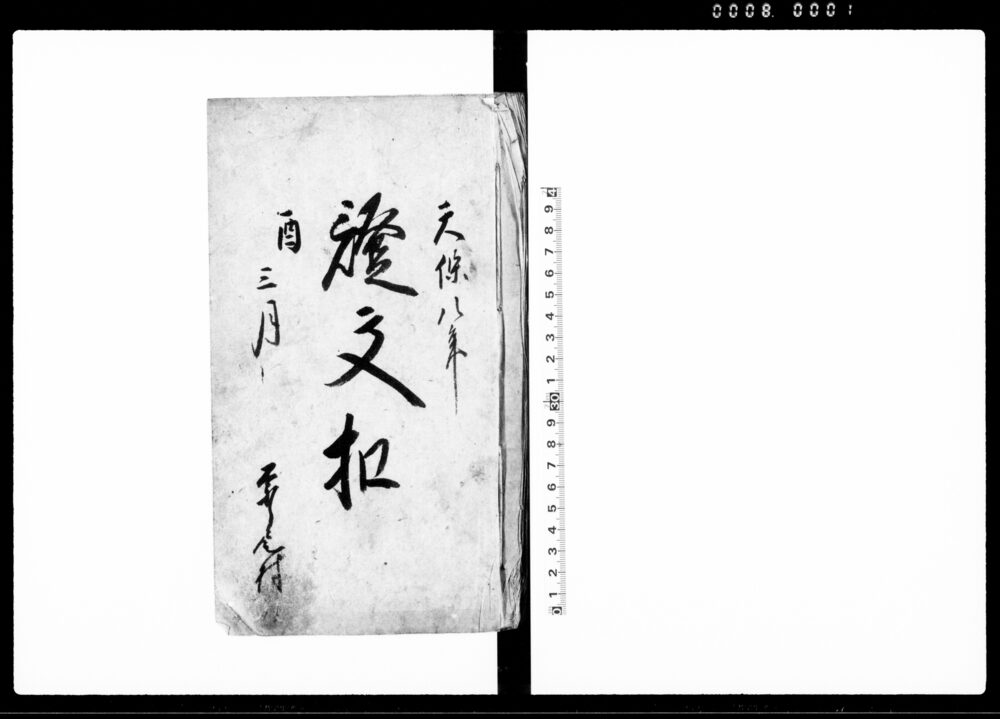 0008 0001
天保八年
證文扣
酉三月
村
0 1 2 3 4 5 6 7 8 9 30 1 2 3 4 5 6 7 8 9 4